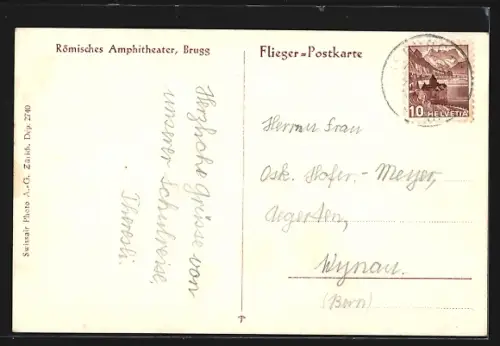 Römisches Amphitheater, Brugg
Flieger=Postkarte
10 HELVETIA
Swissair Photo A.-G. Zürich. Dep. 2740
Herzliche Grüsse von
unserer Schulreise,
Theresli.
Herrn u Frau
Osk. Hofer.-Meyer,
Aegerten,
Wynau.
(Bern)